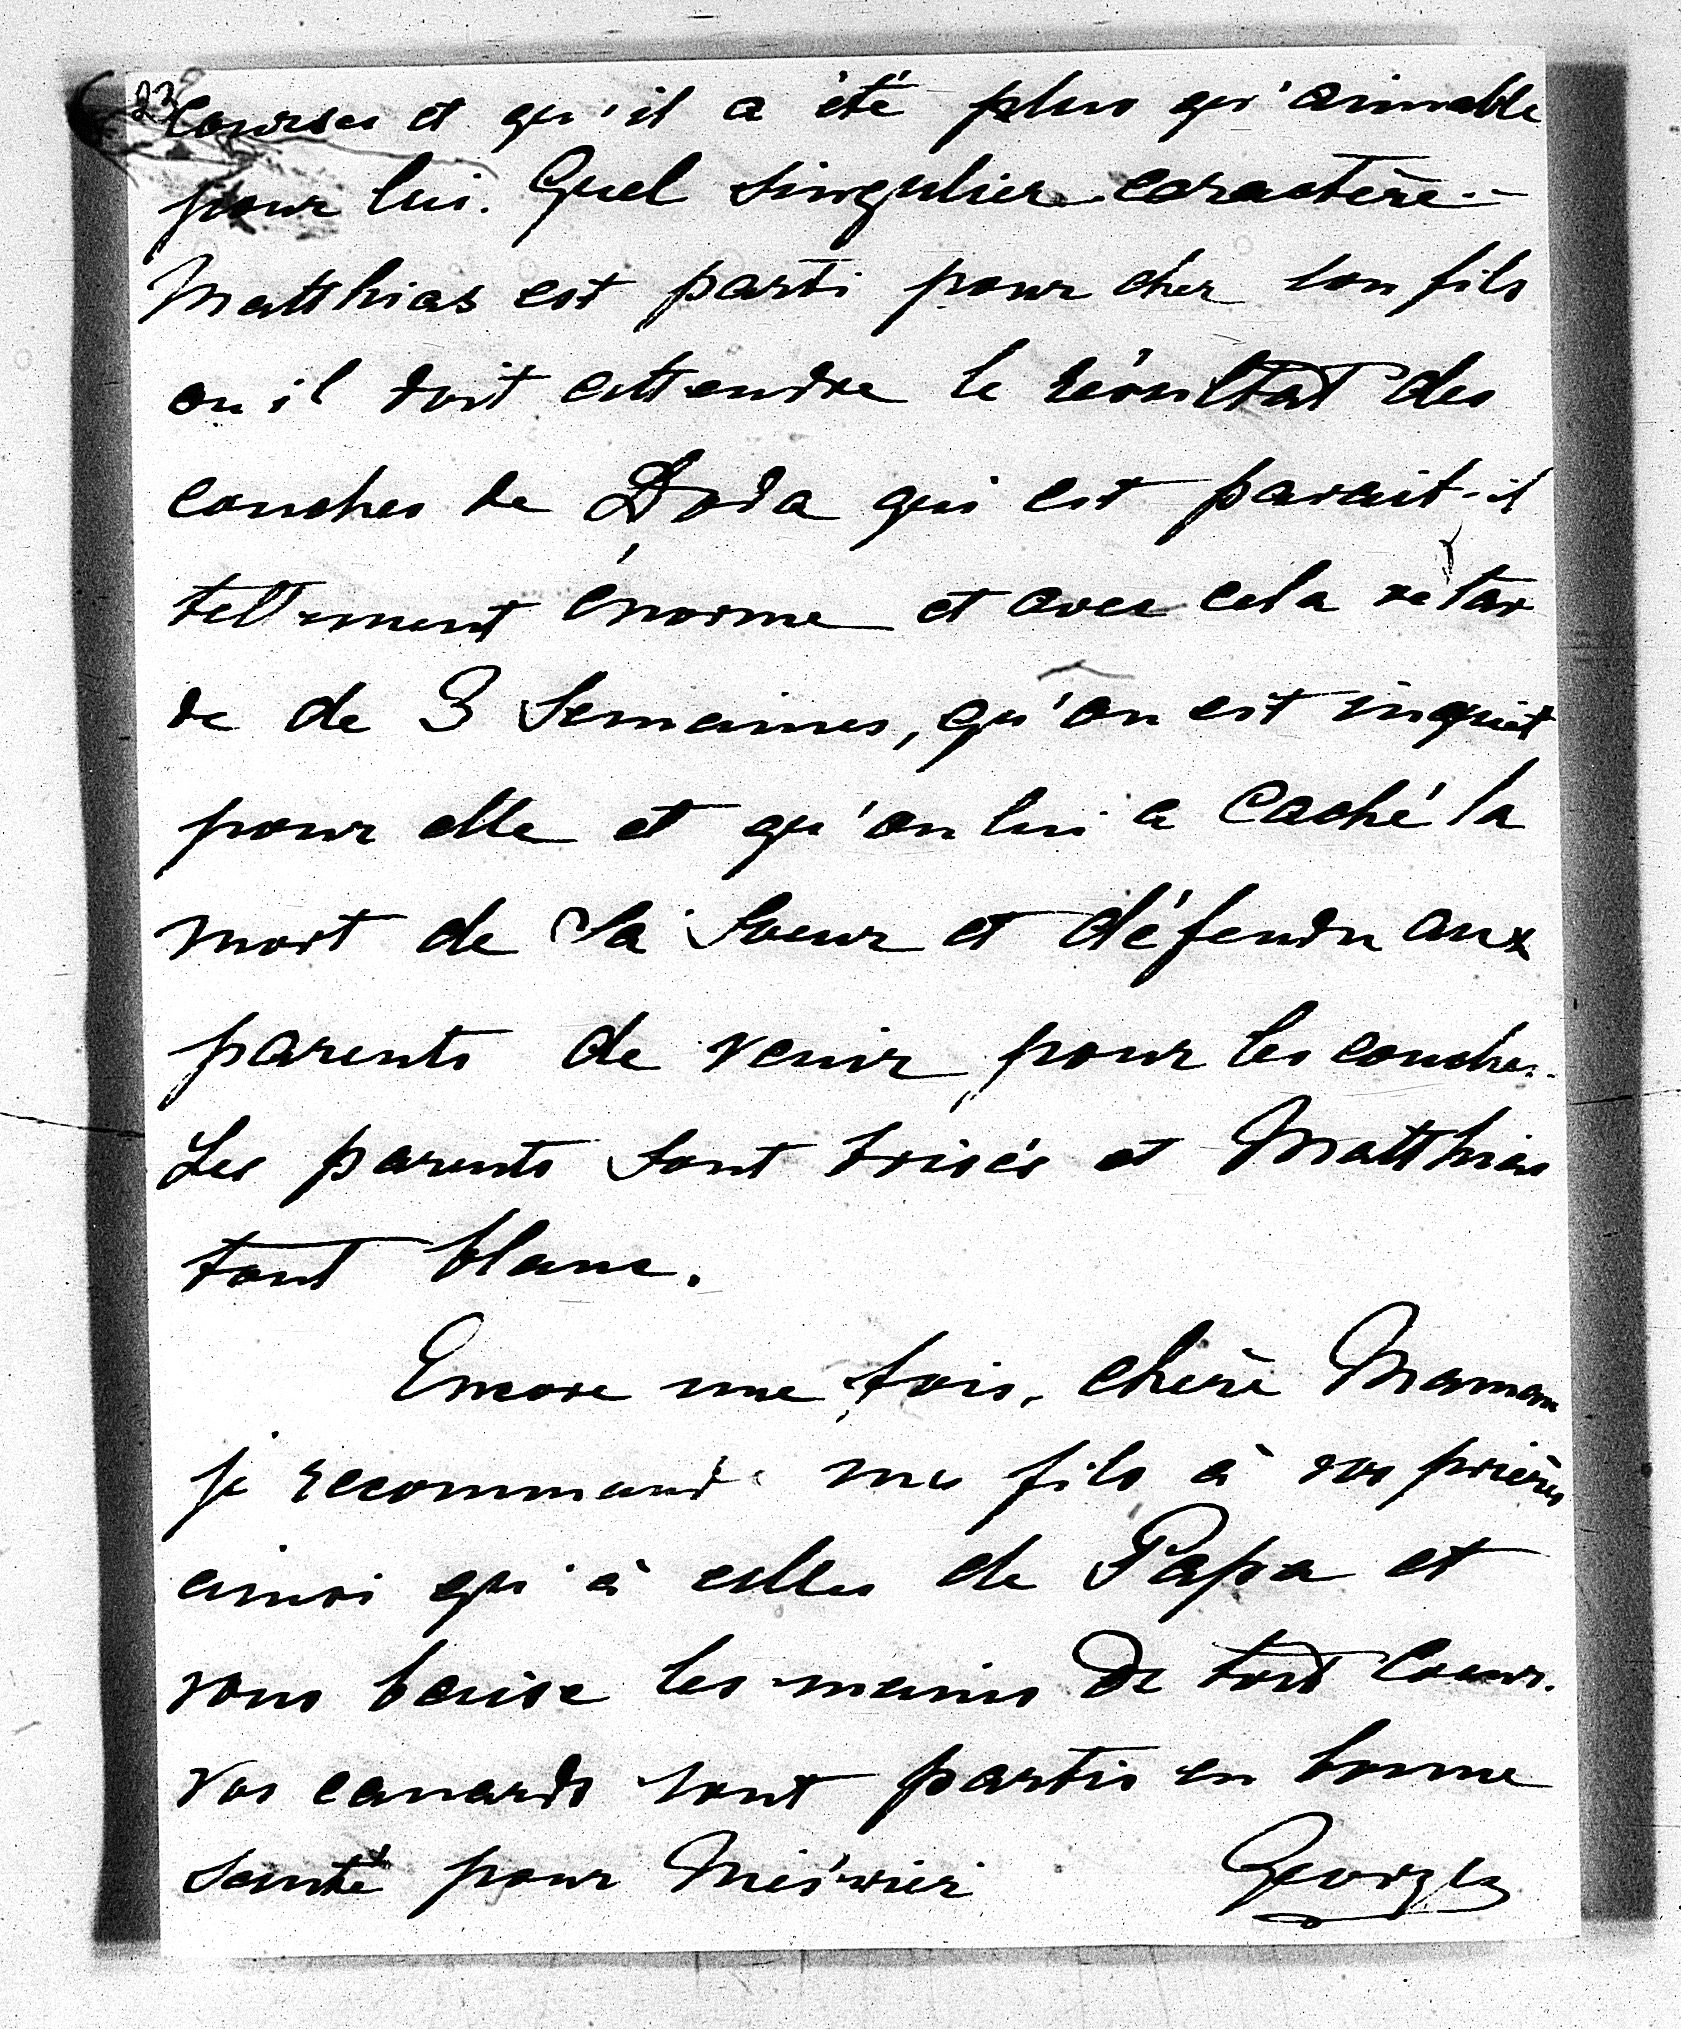 23
courses et qu'il a été plus qu'aimable
pour lui. Quel singulier caractère.-
Matthias est parti pour chez son fils
ou il doit attendre le résultat des
couches de Doda qui est parait-il
tellement énorme et avec cela retar
de de 3 semaines, qu'on est inquiet
pour elle et qu'on lui a caché la
mort de sa soeur et défendu aux
parents de venir pour les couches.
Les parents sont brisés et Matthias
tout blanc.
Encore une fois, chère Maman
je recommande mes fils à vos prières
ainsi qu'à celles de Papa et
vous baise les mains de tout coeur.
Vos canards sont partis en bonne
santé pour
Georges